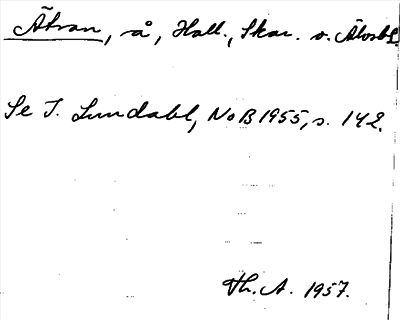 Ätran, å, Hall., Skar. o. Älvsb l.
Se I. Lundahl, NoB 1955, s. 142.
Th. A. 1957.